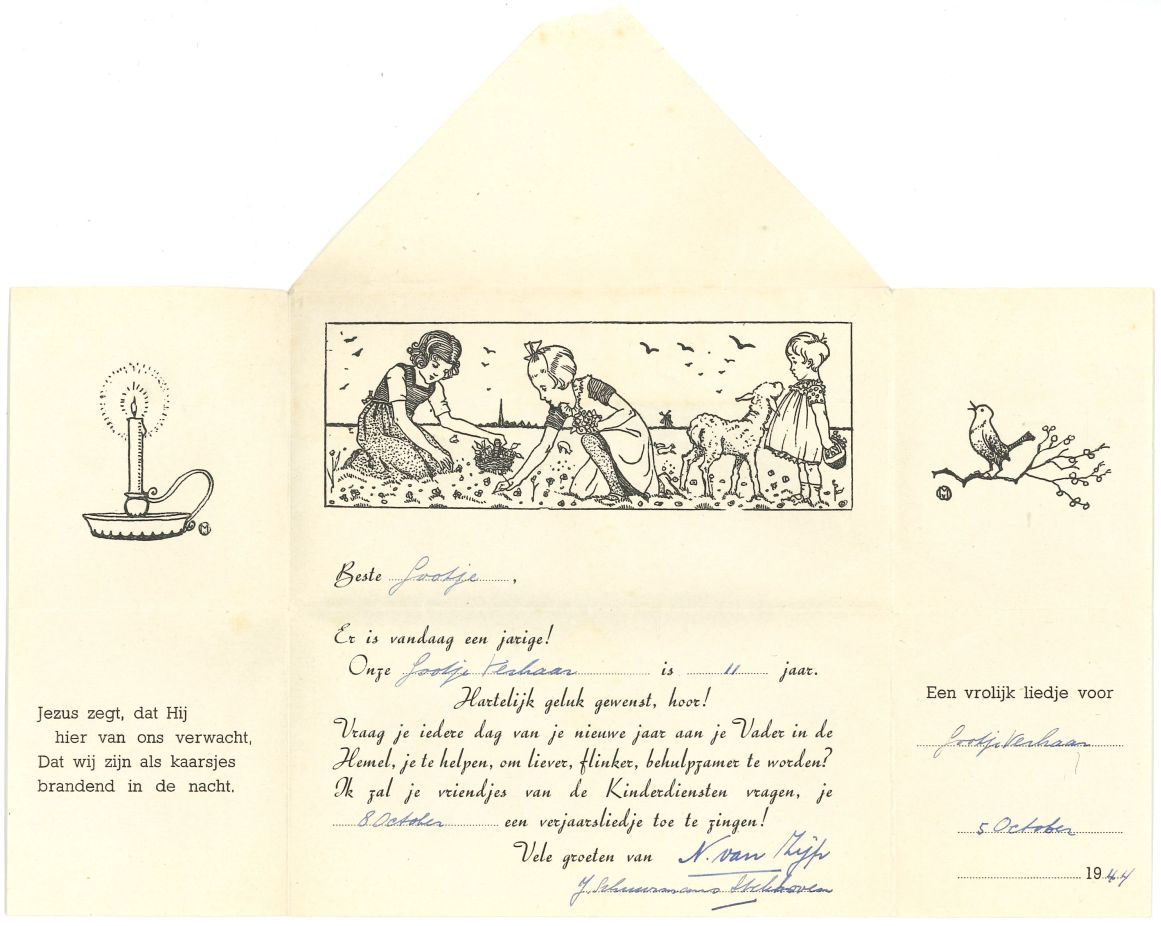 Jezus zegt, dat Hij
hier van ons verwacht,
Dat wij zijn als kaarsjes
brandend in de nacht.
Beste Gootje,
Er is vandaag een jarige!
Onze Gootje Verhaar is 11 jaar.
Hartelijk geluk gewenst, hoor!
Vraag je iedere dag van je nieuwe jaar aan je Vader in de
Hemel, je te helpen, om liever, flinker, behulpzamer te worden?
Ik zal je vriendjes van de Kinderdiensten vragen, je
8 October een verjaarsliedje toe te zingen!
Vele groeten van N. van Zijp
J. Schuurmans Stekhoven
Een vrolijk liedje voor
Gootje Verhaar
5 October
1944